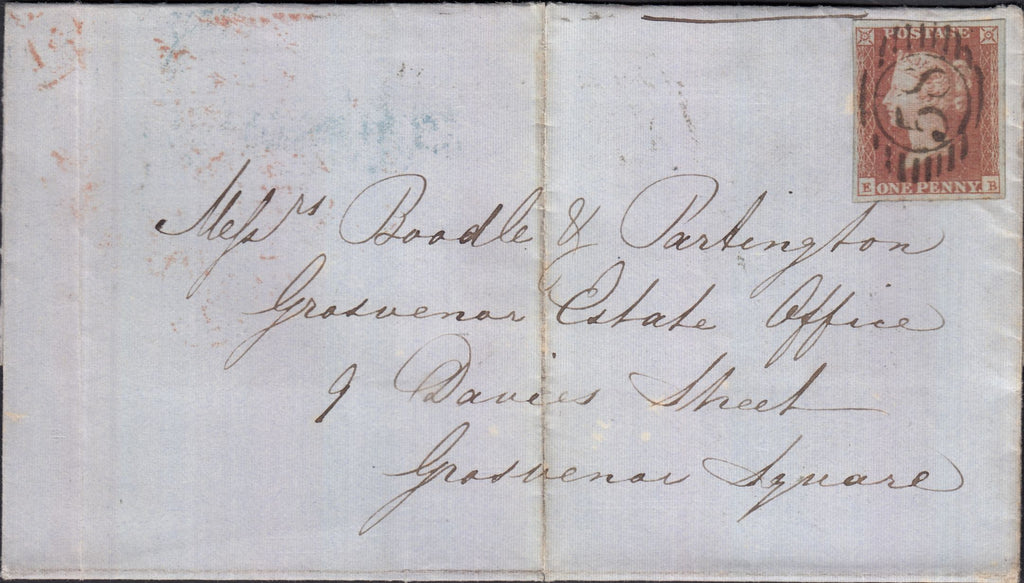 POSTAGE
58
E ONE PENNY. B
Messrs Boodle & Partington
Grosvenor Estate Office
9 Davies Street
Grosvenor Square